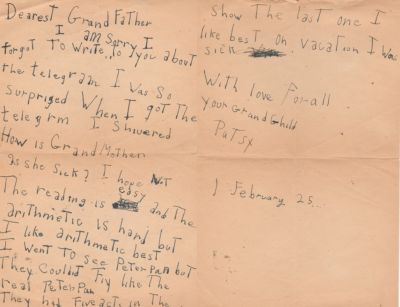 Dearest Grand Father
I am Sorry I
forgot To write to you about
the telegram I was so
surprised When I got The
telegrm I Shivered
How is Grand Mother
is she Sick? I hope Not
The reading is easy and The
arithmetic is hard but
I like arithmetic best
I went To see Peter Pan but
They Could't Fly like The
real Peter Pan
They had Five acts in The
show The last one I
like best on vacation I was
sick
With love For all
your Grand Child
Patsy
February 25